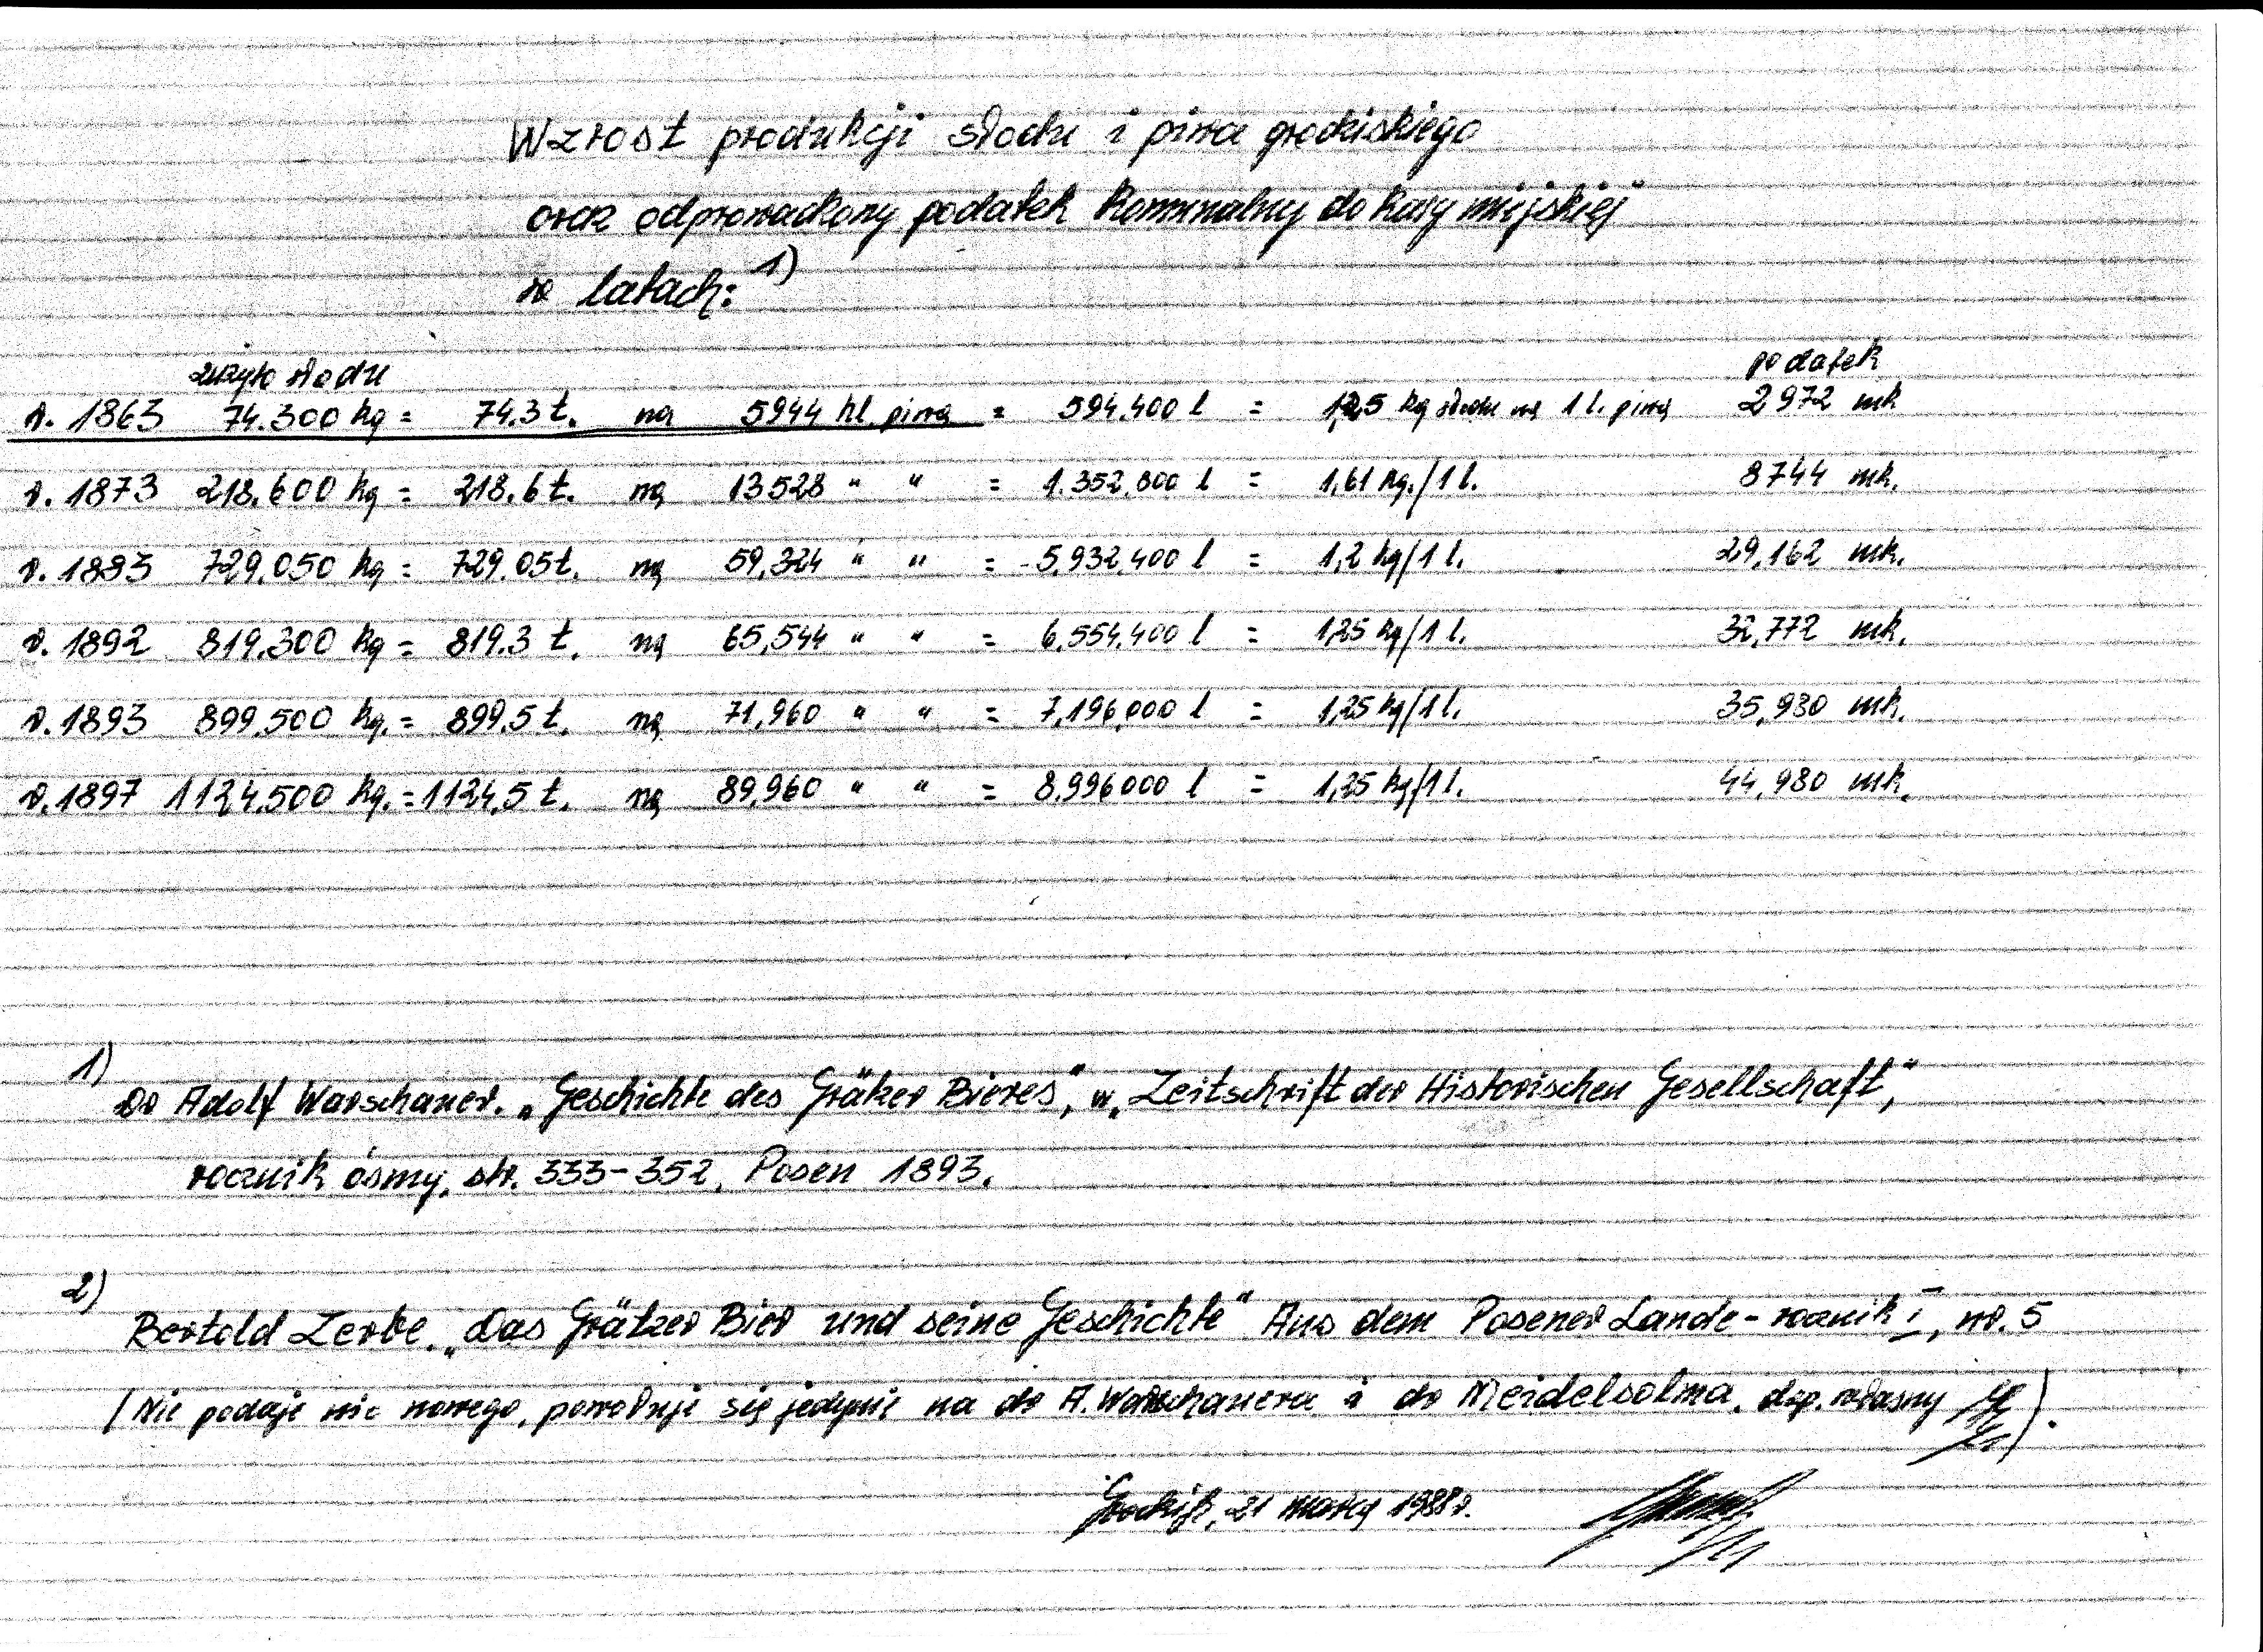 Wzrost produkcji słodu i piwa grodziskiego
oraz odprowadzony podatek komunalny do kasy miejskiej
w latach: 1)
zużyto słodu podatek
r. 1863 74.300 kg = 74.3 t. na 5944 hl. piwa = 594.400 l = 1,25 kg słodu na 1 l. piwa 2972 mk
r. 1873 218.600 kg = 218.6 t. na 13528 " " = 1.352.800 l = 1,61 kg./1 l. 8744 mk.
r. 1883 729.050 kg = 729.05 t. na 59,324 " " = 5.932.400 l = 1,2 kg/1 l. 29,162 mk.
r. 1892 819.300 kg = 819.3 t. na 65,544 " " = 6.554.400 l = 1,25 kg/1 l. 32,772 mk.
r. 1893 899.500 kg. = 899.5 t. na 71,960 " " = 7,196,000 l = 1,25 kg/1 l. 35,980 mk.
r. 1897 1124.500 kg. = 1124,5 t. na 89,960 " " = 8.996000 l = 1,25 kg/1 l. 44,980 mk.
1)
Dr Adolf Warschauer. „Geschichte des Grätzer Bieres”, w „Zeitschrift der Historischen Gesellschaft”,
rocznik ósmy, str. 333-352, Posen 1893.
2)
Bertold Zerbe. „Das Grätzer Bier und seine Geschichte” Aus dem Posener Lande - rocznik I, nr. 5
(Nie podaje nic nowego, powołuje się jedynie na dr A. Warschauera i dr Meidelsolma. dop. własny).
Grodzisk, 21 marca 1988 r.